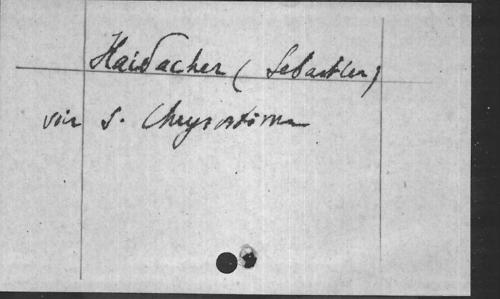 Haidacher (Sebastien)
voir S. Chrysostome